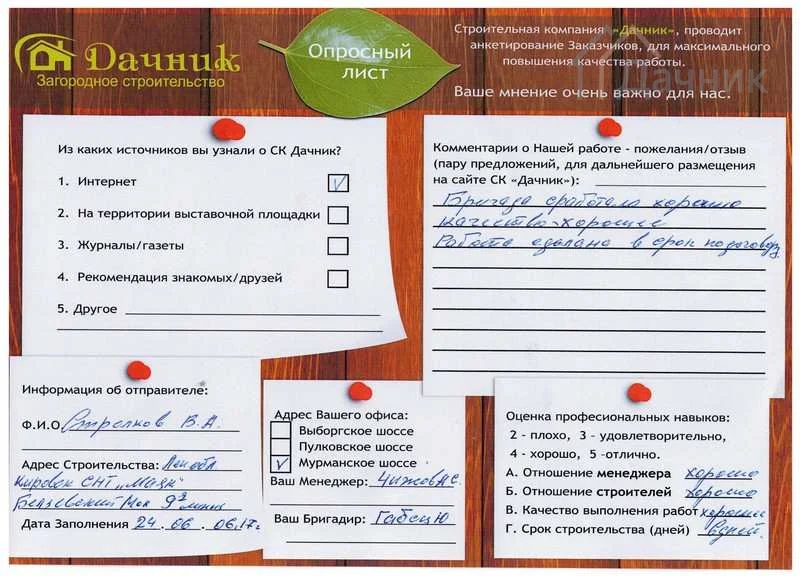 Дачник
Загородное строительство
Опросный
лист
Строительная компания «Дачник», проводит
анкетирование Заказчиков, для максимального
повышения качества работы.
Ваше мнение очень важно для нас.
Дачник
Из каких источников вы узнали о СК Дачник?
1. Интернет
2. На территории выставочной площадки
3. Журналы/газеты
4. Рекомендация знакомых/друзей
5. Другое
Комментарии о Нашей работе - пожелания/отзыв
(пару предложений, для дальнейшего размещения
на сайте СК «Дачник»):
Бригада сработала хорошо
качество-хорошее
Работа сделана в срок по договору
Информация об отправителе:
Ф.И.О Стрелков В.А.
Адрес Строительства: Лен обл
Кировск СНТ „Маяк"
9
Дата Заполнения 24 . 06 . 06.17г
Адрес Вашего офиса:
Выборгское шоссе
Пулковское шоссе
Мурманское шоссе
Ваш Менеджер: Чижов А.С.
Ваш Бригадир:
Оценка профессиональных навыков:
2 - плохо, 3 - удовлетворительно,
4 - хорошо, 5 -отлично.
А. Отношение менеджера хорошо
Б. Отношение строителей хорошо
В. Качество выполнения работ хорошее
Г. Срок строительства (дней) дней